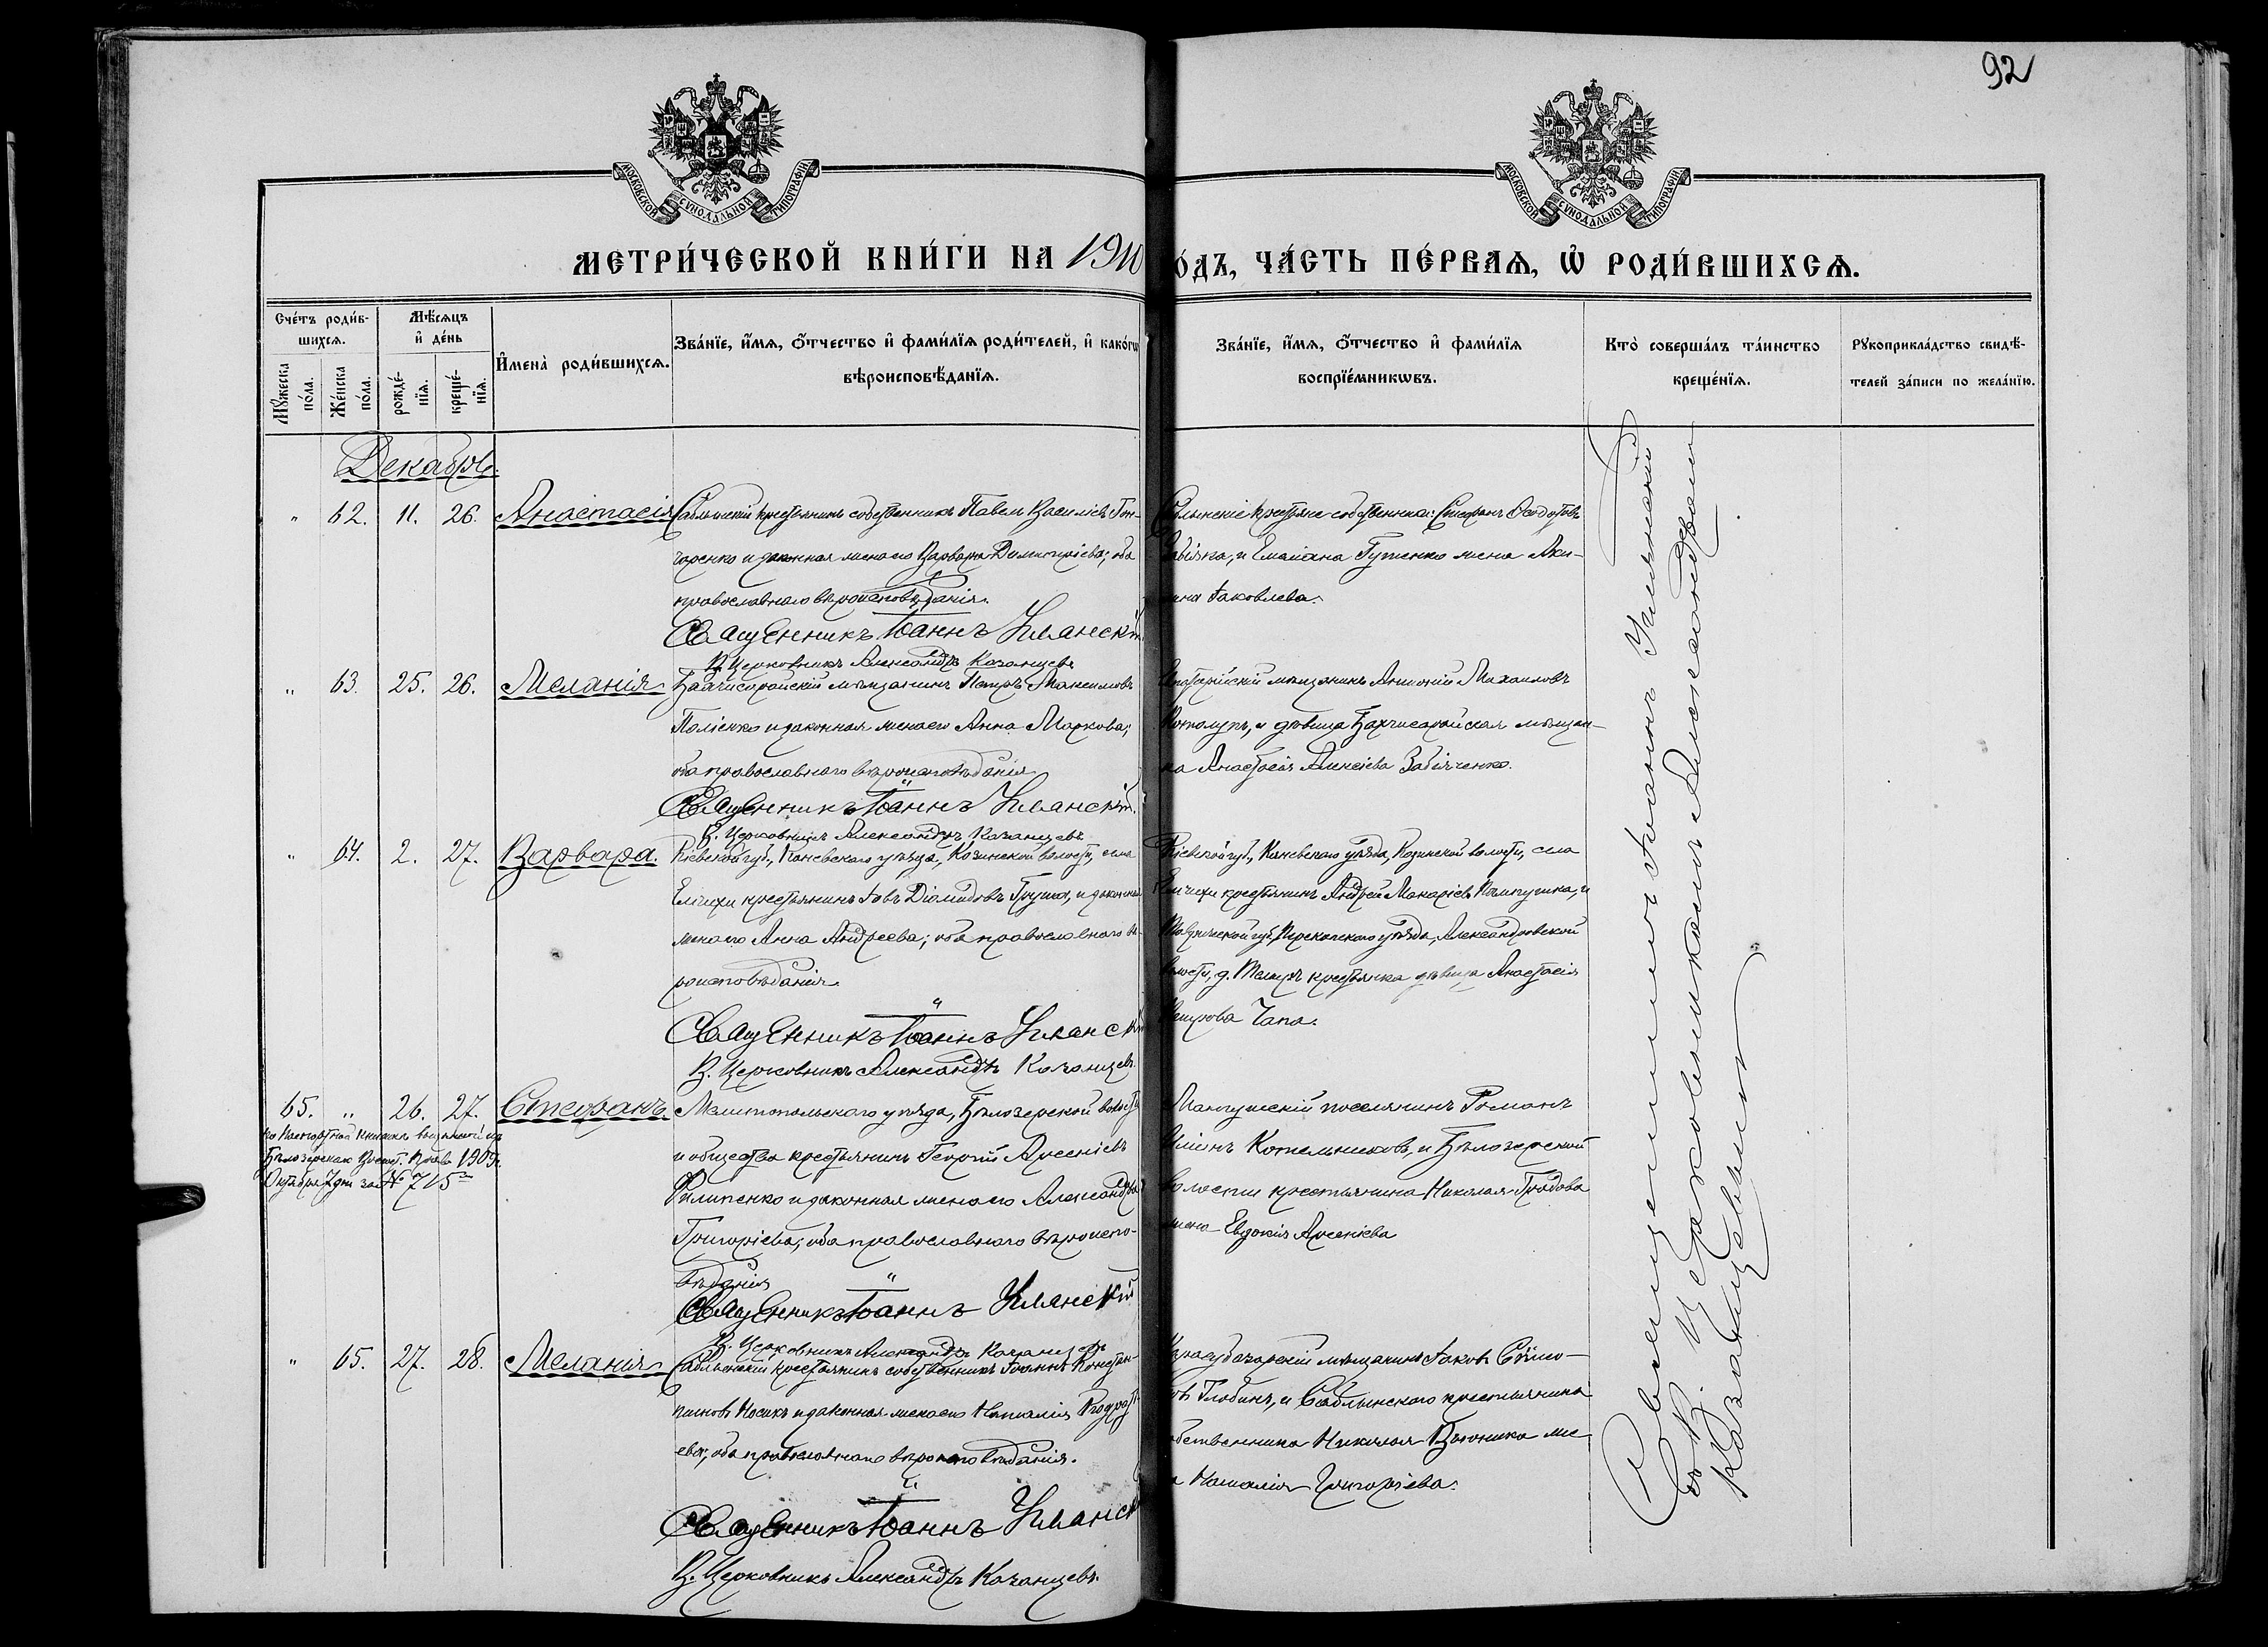 92
МОСКОВСКОЙ СѴНОДАЛЬНОЙ ТИПОГРАФІИ
МОСКОВСКОЙ СѴНОДАЛЬНОЙ ТИПОГРАФІИ
МЕТРИ́ЧЕСКОЙ КНИ́ГИ НА 1910
О́ДЪ, ЧА́СТЬ ПЕ́РВАѦ, Ѽ РОДИ́ВШИХСѦ.
Сче́тъ роди́в-
шихсѧ.
Мѣ́сѧцъ
и҆ де́нь
Мꙋ́жеска по́ла.
Же́нска по́ла.
рожде́-нїѧ.
креще́-нїѧ.
И҆мена̀ роди́вшихсѧ.
Зва́нїе, и҆́мѧ, ѻ҆́тчество и҆ фами́лїѧ роди́телей, и҆ како́гѡ
вѣроисповѣ́данїѧ.
Зва́нїе, и҆́мѧ, ѻ҆́тчество и҆ фами́лїѧ
воспрїе́мникѡвъ.
Кто̀ соверша́лъ та́инство
креще́нїѧ.
Рꙋкоприкла́дство свидѣ́-
телей за́писи по жела́нїю.
Декабрь.
" 62. 11. 26. Анастасія
Саблынскій крестьянинъ собственникъ Павелъ Василіевъ Гон-
чаренко и законная жена его Варвара Димитріева; оба
православнаго вѣроисповѣданія.
Священникъ Іоаннъ Уманскій
В. Церковникъ Александръ Казанцевъ
Саблынскіе крестьяне собственники: Стефанъ Ѳеодотовъ
и Емеліана Гуменко жена Аки-
лина Іаковлева.
" 63. 25. 26. Меланія
Бахчисарайскій мѣщанинъ Петръ Максимовъ
Поліенко и законная жена его Анна Маркова;
оба православнаго вѣроисповѣданія
Священникъ Іоаннъ Уманскій.
В. Церковникъ Александръ Казанцевъ
мѣщанинъ Антоній Михаиловъ
и дѣвица Бахчисарайская мѣщан-
ка Анастасія Алексіева Забіяченко.
" 64. 2. 27. Варвара.
Кіевской губ., Каневскаго уѣзда, Козинской волости, села
крестьянинъ Іовъ Діомидовъ Груша, и законная
жена его Анна Андреева; оба православнаго вѣ-
роисповѣданія.
Священникъ Іоаннъ Уманскій
В. Церковникъ Александръ Казанцевъ
Кіевской губ., Каневскаго уѣзда, Козинской волости, села
крестьянинъ Андрей Макаріевъ и
Таврической губ., Перекопскаго уѣзда, Александровской
волости, д. крестьянка дѣвица Анастасія
Петрова Чапа.
65. " 26. 27. Стефанъ.
по паспортной книжкѣ выданной изъ
Бѣлозерскаго Волост. Правл. 1909 г.
Октября 7 дня за № 715
Мелитопольскаго уѣзда, Бѣлозерской волости
и общества крестьянинъ Георгій Арсеніевъ
Филипенко и законная жена его Александра
Григоріева; оба православнаго вѣроиспо-
вѣданія
Священникъ Іоаннъ Уманскій
В. Церковникъ Александръ Казанцевъ
Мангушскій поселянинъ Романъ
Иліинъ Котельниковъ, и Бѣлозерской
волости крестьянина Николая Градова
жена Евдокія Арсеніева
" 65. 27. 28. Меланія
Саблынскій крестьянинъ собственникъ Іоаннъ Констан-
тиновъ Носикъ и законная жена его Наталія Кодрат-
ева; оба православнаго вѣроисповѣданія.
Священникъ Іоаннъ Уманскій
В. Церковникъ Александръ Казанцевъ.
Карасубазарскій мѣщанинъ Іаковъ Симо-
овъ Глобинъ, и Саблынскаго крестьянина
собственника Николая Вьюника же-
на Наталія Григоріева.
Священникъ Іоаннъ Уманскій
съ В. Церковникомъ Александромъ
Казанцевымъ